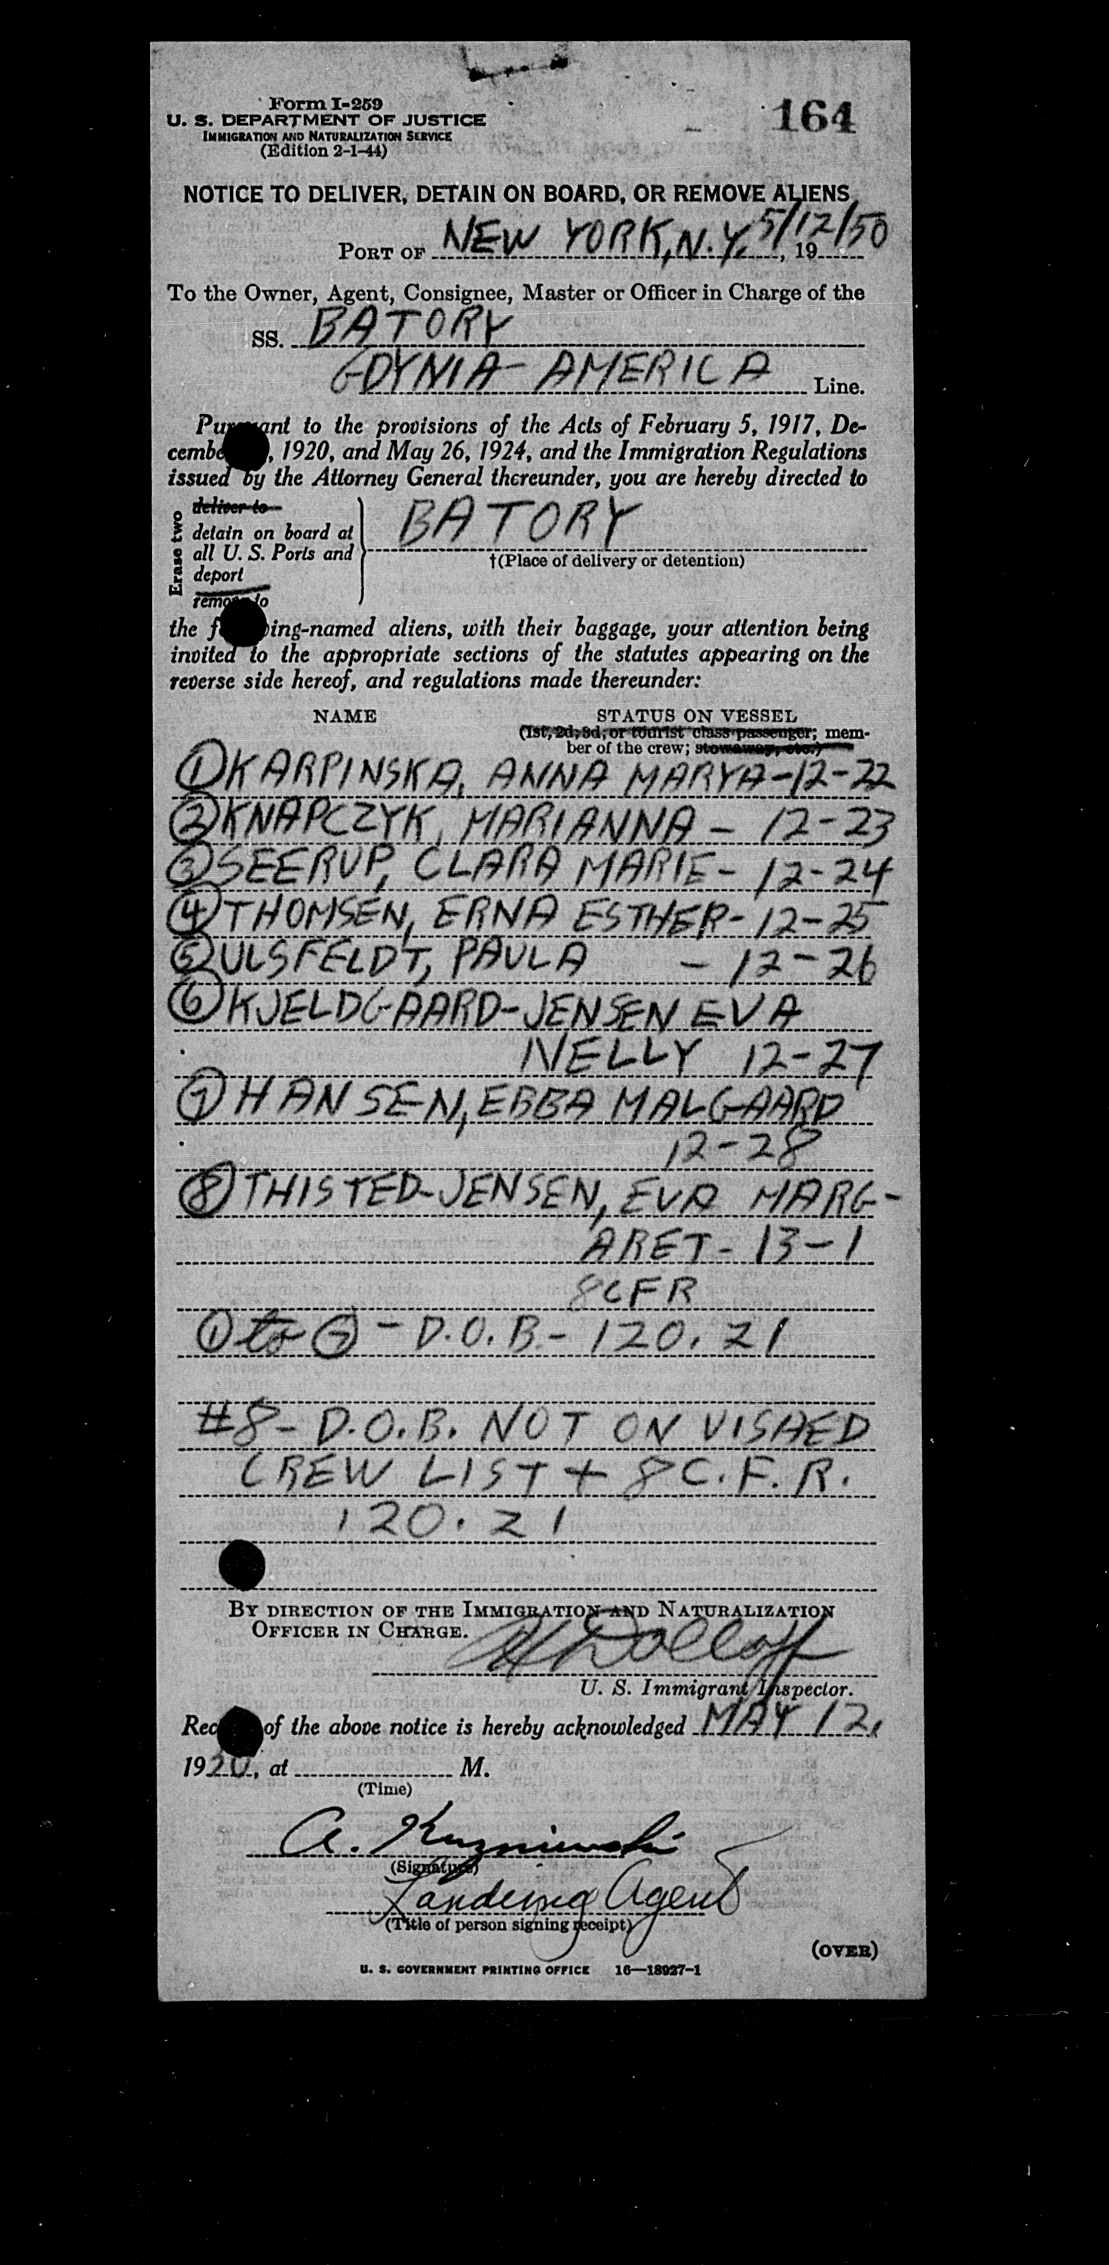 Form I-259
U. S. DEPARTMENT OF JUSTICE
IMMIGRATION AND NATURALIZATION SERVICE
(Edition 2-1-44)
164
NOTICE TO DELIVER, DETAIN ON BOARD, OR REMOVE ALIENS
PORT OF NEW YORK, N.Y. 5/12/50, 19
To the Owner, Agent, Consignee, Master or Officer in Charge of the
SS. BATORY
GDYNIA-AMERICA Line.
Pursuant to the provisions of the Acts of February 5, 1917, De-
cember , 1920, and May 26, 1924, and the Immigration Regulations
issued by the Attorney General thereunder, you are hereby directed to
Erase two
deliver to
detain on board at
all U. S. Ports and
deport
remove to
BATORY
†(Place of delivery or detention)
the following-named aliens, with their baggage, your attention being
invited to the appropriate sections of the statutes appearing on the
reverse side hereof, and regulations made thereunder:
NAME STATUS ON VESSEL
(1st, 2d, 3d, or tourist class passenger; mem-
ber of the crew; stowaway, etc.)
① KARPINSKA, ANNA MARYA-12-22
② KNAPCZYK, MARIANNA - 12-23
③ SEERUP, CLARA MARIE- 12-24
④ THOMSEN, ERNA ESTHER- 12-25
⑤ ULSFELDT, PAULA - 12-26
⑥ KJELDGAARD-JENSEN EVA
NELLY 12-27
⑦ HANSEN, EBBA MALGAARD
12-28
⑧ THISTED-JENSEN, EVA MARG-
ARET- 13-1
8CFR
① to ⑦ - D.O.B- 120.21
#8- D.O.B. NOT ON VISAED
CREW LIST + 8 C.F.R.
120.21
BY DIRECTION OF THE IMMIGRATION AND NATURALIZATION
OFFICER IN CHARGE.
U. S. Immigrant Inspector.
Receipt of the above notice is hereby acknowledged MAY 12,
1920, at M.
(Time)
A. Kuzniewski
(Signature)
Landing Agent
(Title of person signing receipt)
(OVER)
U. S. GOVERNMENT PRINTING OFFICE 16—18927-1